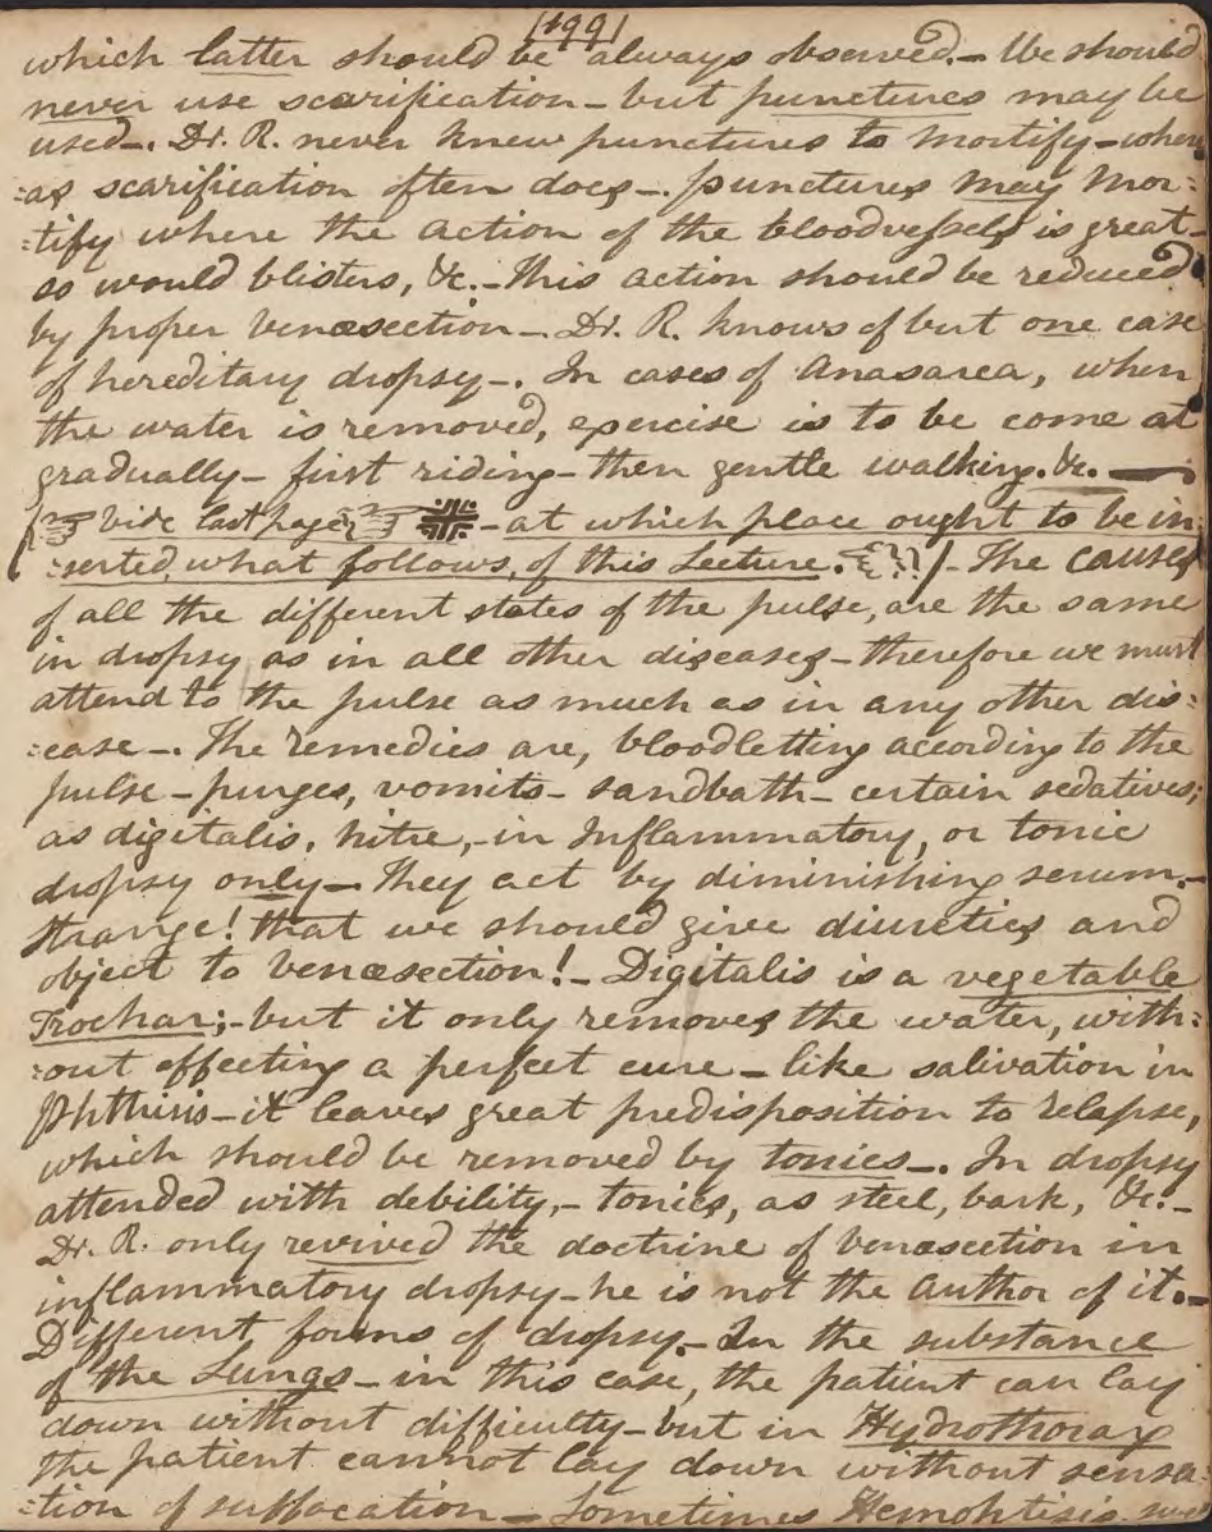 (199)
which latter should be always observed.- We should
never use scarification - but punctures may be
used-. Dr. R. never knew punctures to mortify - where
:as scarification often does-. punctures may mor:
:tify where the action of the bloodvessels is great-
so would blisters, &c.- This action should be reduced
by proper venæsection-. Dr. R. knows of but one case
of hereditary dropsy-. In cases of Anasarca, when
the water is removed, exercise is to be come at
gradually - first riding - then gentle walking. &c. —
(☞ vide last page, ☞ - at which place ought to be in
:serted, what follows, of this Lecture.)- The causes
of all the different states of the pulse, are the same
in dropsy as in all other diseases - therefore we must
attend to the pulse as much as in any other dis:
:ease-. The remedies are, bloodletting according to the
pulse - purges, vomits - sandbath - certain sedatives;
as digitalis, nitre,- in Inflammatory, or tonic
dropsy only - They act by diminishing serum.-
Strange! that we should give diuretics and
object to venæsection!- Digitalis is a vegetable
Trochar;- but it only removes the water, with:
:out effecting a perfect cure - like salivation in
Phthisis - it leaves great predisposition to relapse,
which should be removed by tonics-. In dropsy
attended with debility,- tonics, as steel, bark, &c.-
Dr. R. only revived the doctrine of venæsection in
inflammatory dropsy - he is not the author of it.-
Different forms of dropsy.- In the substance
of the Lungs - in this case, the patient can lay
down without difficulty - but in Hydrothorax
the patient cannot lay down without sensa:
:tion of suffocation - Sometimes Hemoptisis